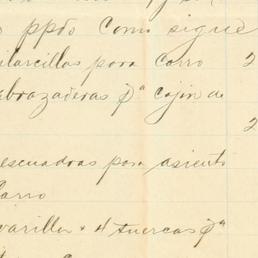 ppdo como sigue
pilarcillos para carro 2
abrazaderas pª cajon de
2
escuadras para asiento
carro
varillas 4 tuercas pª